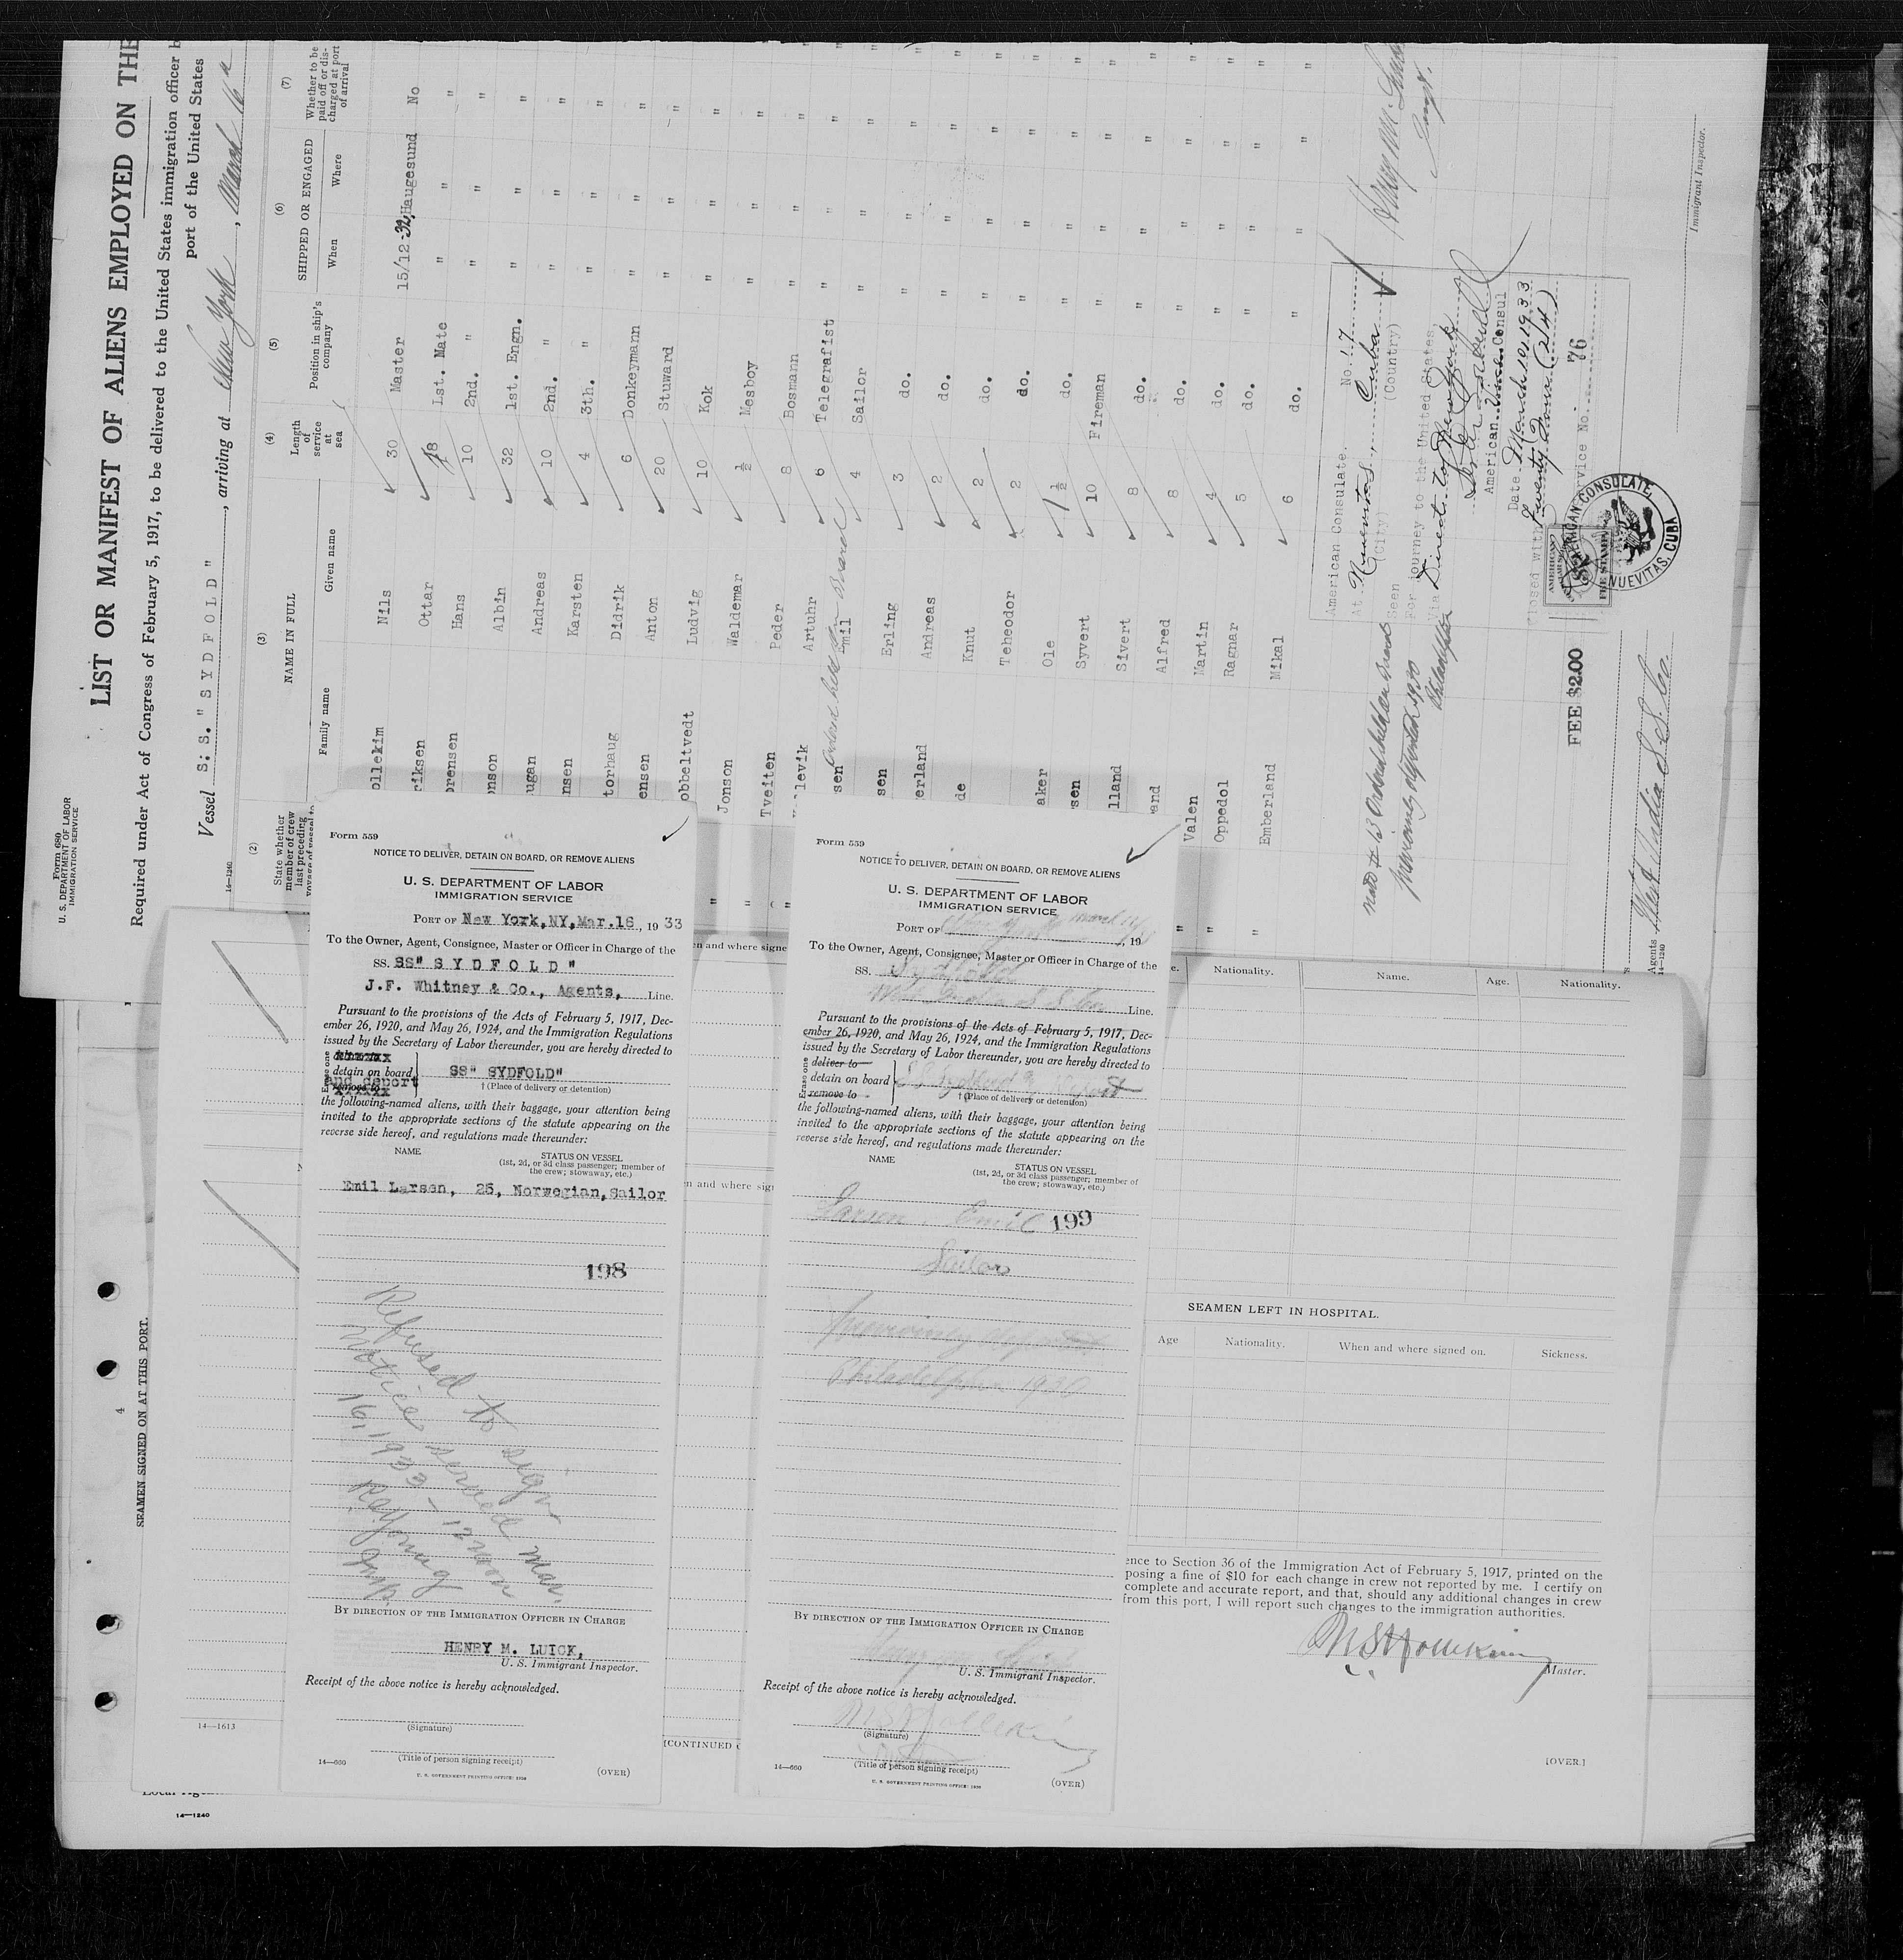 Form 680
U. S. DEPARTMENT OF LABOR
IMMIGRATION SERVICE
LIST OR MANIFEST OF ALIENS EMPLOYED ON THE
Required under Act of Congress of February 5, 1917, to be delivered to the United States immigration officer b
port of the United States
Vessel S: S. " S Y D F O L D ", arriving at New York, March 16
14—1240
(2)
State whether member of crew last preceding
(3)
NAME IN FULL
Family name
Given name
(4)
Length of service at sea
(5)
Position in ship's company
(6)
SHIPPED OR ENGAGED
When
Where
(7)
Whether to be paid off or discharged at port of arrival
ollekim Nils 30 Master 15/12-32, Haugesund No
riksen Ottar 18 1st. Mate " " "
orensen Hans 10 2nd. " " " "
nson Albin 32 1st. Engn. " " "
ugan Andreas 10 2nd. " " " "
nsen Karsten 4 3th. " " " "
torhaug Didrik 6 Donkeymann " " "
ensen Anton 20 Stuward " " "
obbelvedt Ludvig 10 Kok " " "
Jonson Waldemar ½ Mesboy " " "
Tveiten Peder 8 Bosmann " " "
levik Artuhr 6 Telegrafist " " "
sen Emil 4 Sailor " " "
sen Erling 3 do. " " "
erland Andreas 2 do. " " "
de Knut 2 do. " " "
Teheodor 2 do. " " "
aker Ole 1½ do. " " "
sen Syvert 10 Fireman " " "
lland Sivert 8 do. " " "
and Alfred 8 do. " " "
Valen Martin 4 do. " " "
Oppedol Ragnar 5 do. " " "
Emberland Mikal 6 do. " " "
Ordered held on Board
Note # 13 Ordered held on Board
previously deported 1930
Philadelphia
American Consulate. No. 17
At Nuevitas, Cuba
(City) (Country)
Seen
For journey to the United States
Via Direct to New York
American Vice Consul
Date March 10, 1933
Closed with Twenty Four (24)
Service No. 76
FEE $2.00
AMERICAN CONSULATE,
NUEVITAS, CUBA
FEE STAMP
Immigrant Inspector.
Agents West India S.S. Co.
14—1240
Form 559
NOTICE TO DELIVER, DETAIN ON BOARD, OR REMOVE ALIENS
U. S. DEPARTMENT OF LABOR
IMMIGRATION SERVICE
PORT OF New York, NY, Mar. 16, 1933
To the Owner, Agent, Consignee, Master or Officer in Charge of the
SS. SS" S Y D F O L D "
J.F. Whitney & Co., Agents, Line.
Pursuant to the provisions of the Acts of February 5, 1917, Dec-
ember 26, 1920, and May 26, 1924, and the Immigration Regulations
issued by the Secretary of Labor thereunder, you are hereby directed to
Erase one
detain on board SS" SYDFOLD"
and deport
remove to
† (Place of delivery or detention)
the following-named aliens, with their baggage, your attention being
invited to the appropriate sections of the statute appearing on the
reverse side hereof, and regulations made thereunder:
NAME
STATUS ON VESSEL
(1st, 2d, or 3d class passenger; member of
the crew; stowaway, etc.)
Emil Larsen, 26, Norwegian, Sailor
198
Refused to sign
Notice served Mar.
16, 1933 - 12 noon
Insp
BY DIRECTION OF THE IMMIGRATION OFFICER IN CHARGE
HENRY M. LUICK,
U. S. Immigrant Inspector.
Receipt of the above notice is hereby acknowledged.
(Signature)
(Title of person signing receipt)
14—660
U. S. GOVERNMENT PRINTING OFFICE: 1930
(OVER)
Form 559
NOTICE TO DELIVER, DETAIN ON BOARD, OR REMOVE ALIENS
U. S. DEPARTMENT OF LABOR
IMMIGRATION SERVICE
PORT OF New York March 16, 19
To the Owner, Agent, Consignee, Master or Officer in Charge of the
SS. Sydfold
West India S S Co Line.
Pursuant to the provisions of the Acts of February 5, 1917, Dec-
ember 26, 1920, and May 26, 1924, and the Immigration Regulations
issued by the Secretary of Labor thereunder, you are hereby directed to
Erase one
deliver to
detain on board
remove to
† (Place of delivery or detention)
the following-named aliens, with their baggage, your attention being
invited to the appropriate sections of the statute appearing on the
reverse side hereof, and regulations made thereunder:
NAME
STATUS ON VESSEL
(1st, 2d, or 3d class passenger; member of
the crew; stowaway, etc.)
Larsen, Emil 199
Sailor
previously deported
Philadelphia 1930
BY DIRECTION OF THE IMMIGRATION OFFICER IN CHARGE
U. S. Immigrant Inspector.
Receipt of the above notice is hereby acknowledged.
(Signature)
(Title of person signing receipt)
14—660
U. S. GOVERNMENT PRINTING OFFICE: 1930
(OVER)
n and where signe
n and where sig
Nationality.
Name.
Age.
Nationality.
SEAMEN LEFT IN HOSPITAL.
Age
Nationality.
When and where signed on.
Sickness.
ence to Section 36 of the Immigration Act of February 5, 1917, printed on the
posing a fine of $10 for each change in crew not reported by me. I certify on
complete and accurate report, and that, should any additional changes in crew
from this port, I will report such changes to the immigration authorities.
Master.
[OVER.]
[CONTINUED
SEAMEN SIGNED ON AT THIS PORT.
4
14—1613
14—1240